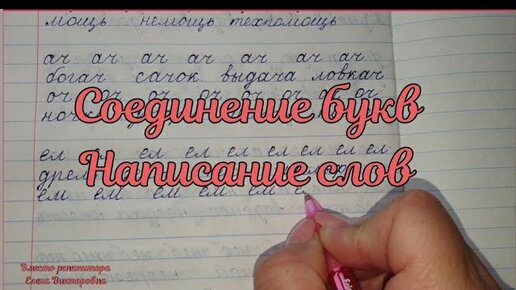 мощь немощь техпомощь
ач ач ач ач ач ач ач
богач сачок выдача ловкач
оч оч оч оч оч оч оч оч
ноч
Соединение букв
ел ел ел ел ел ел ел ел
Написание слов
дрем
ем ем ем ем ем е
Вместо репетитора
Елена Викторовна